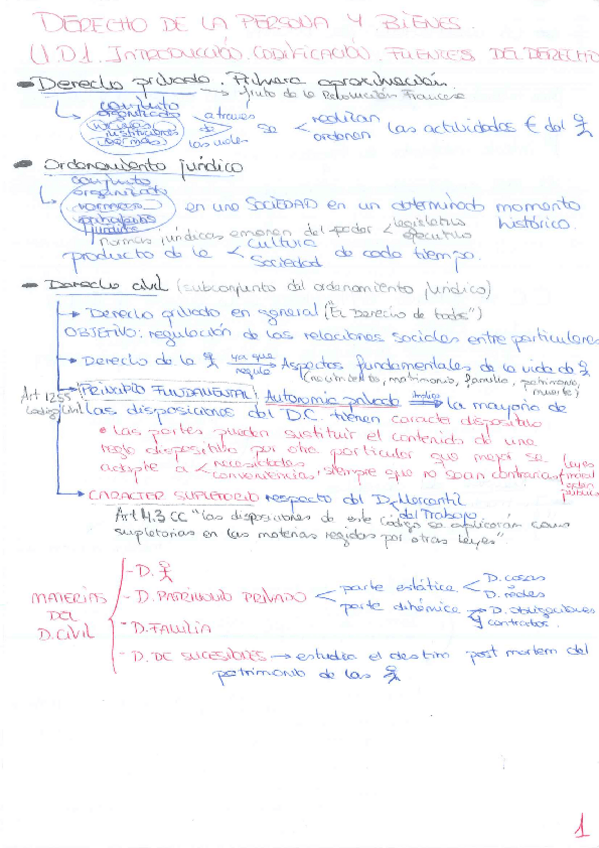 DERECHO DE LA PERSONA Y BIENES.
U.D1. INTRODUCCIÓN. CODIFICACIÓN. FUENTES DEL DERECHO
Derecho privado. Primera aproximación
fruto de la Revolución Francesa
conjunto
organizado
instituciones
normas
a través
de
las cuales
se
realizan
ordenan
las actividades € del
Ordenamiento jurídico
conjunto
organizado
normas
jurídicas
en una SOCIEDAD en un determinado momento
histórico.
normas jurídicas emanan del poder
legislativo
ejecutivo
producto de la
Cultura
Sociedad
de cada tiempo.
Derecho civil (subconjunto del ordenamiento jurídico)
Derecho privado en general ("El Derecho de todos")
OBJETIVO: regulación de las relaciones sociales entre particulares
Derecho de la
ya que
regula
Aspectos fundamentales de la vida de
(nacimiento, matrimonio, familia, patrimonio,
muerte)
Art 1255
Código Civil
PRINCIPIO FUNDAMENTAL: Autonomía privada
implica
la mayoría de
las disposiciones del D.C. tienen caracter dispositivo
• Las partes pueden sustituir el contenido de una
regla dispositiva por otra particular que mejor se
adapte a
necesidades
conveniencia,
siempre que no sean contrarias
leyes
moral
orden
público
CARACTER SUPLETORIO respecto del D. Mercantil
del Trabajo
Art 4.3 CC "las disposiciones de este código se aplicarán como
supletorias en las materias regidas por otras leyes".
MATERIAS
DEL
D.CIVIL
- D.
- D. PATRIMONIO PRIVADO
parte estática
D. cosas
D. reales
parte dinámica
D. obligaciones
y contratos.
- D. FAMILIA
- D. DE SUCESIONES → estudia el destino post mortem del
patrimonio de las
1